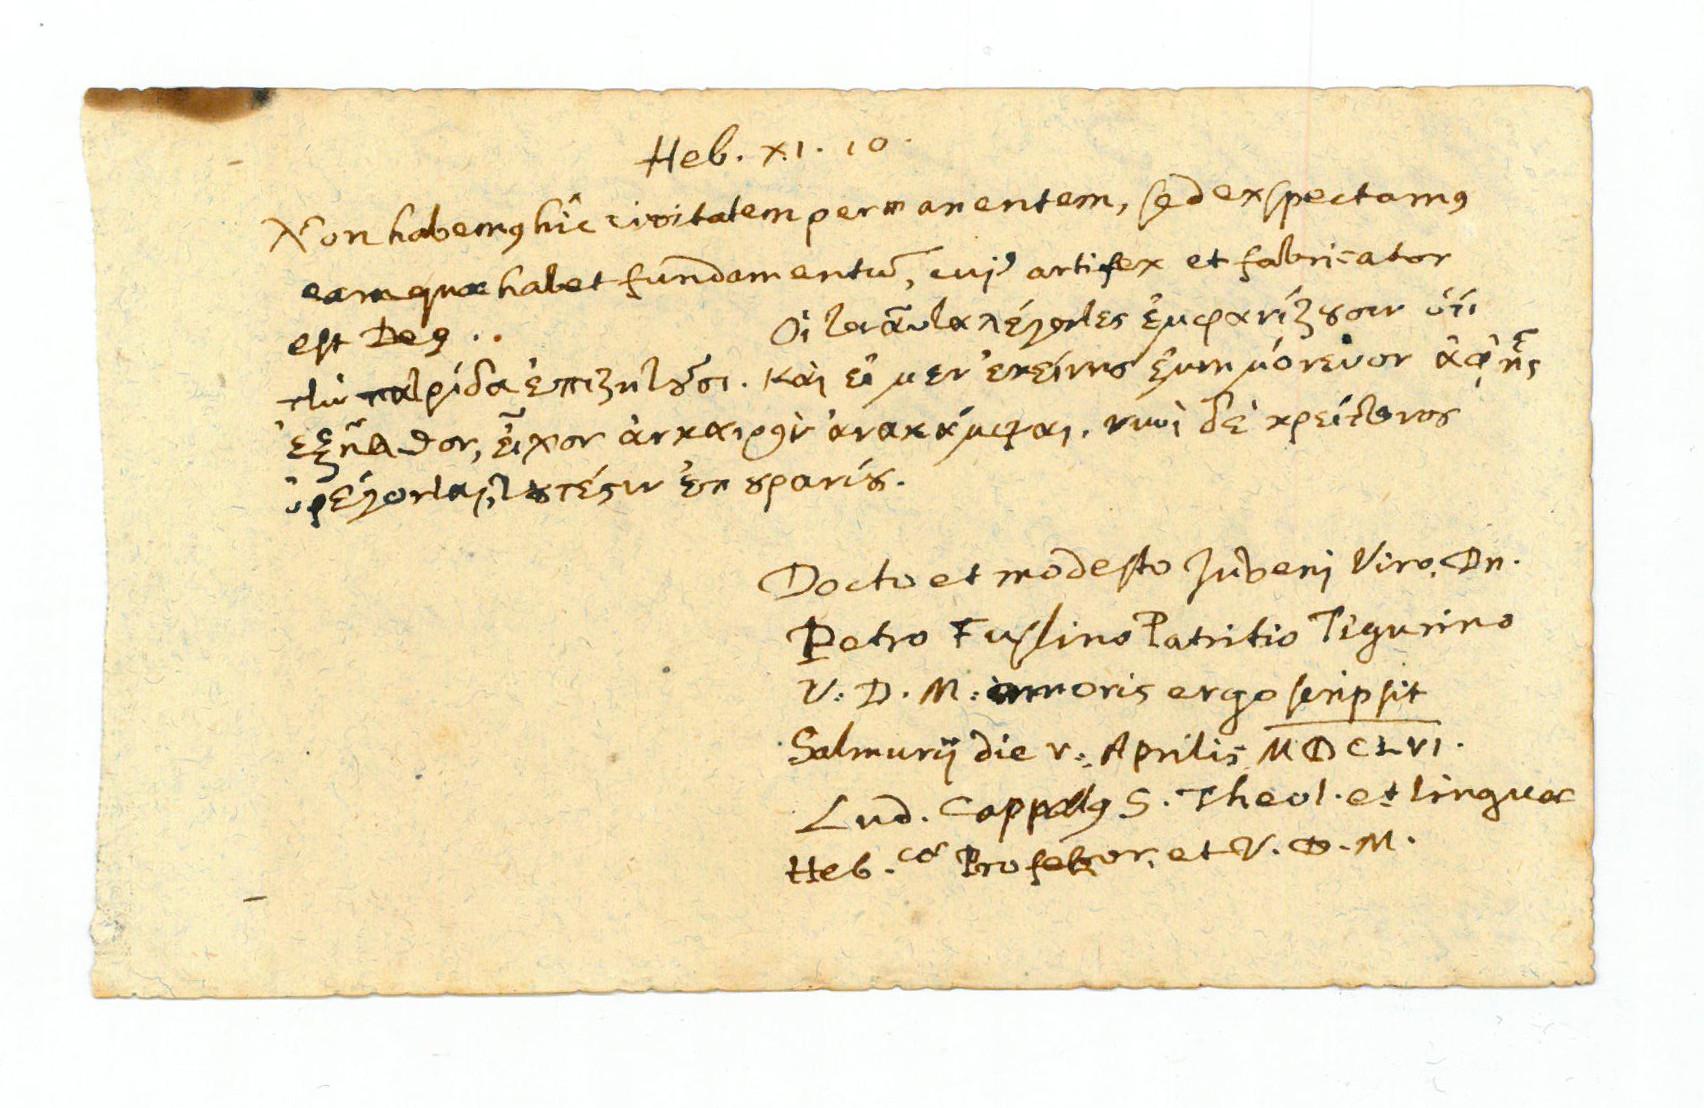 Heb. XI. 10.
Non habemꝰ hîc civitatem permanentem, sed exspectamꝰ
eam quae habet fundamentũ, cujꝰ artifex et fabricator
est Deꝰ . . Οἱ τοιαῦτα λέγοντες ἐμφανίζȣσιν ὅτι
τὴν πατρίδα ἐπιζητȣ͂σι. καὶ εἰ μεν ἐκείνης ἐμνημόνευον ἀφ' ἧς
ἐξῆλθον, εἶχον ἀν καιρὸν ἀνακάμψαι. νυνὶ δὲ κρείττονος
ὀρέγονται, τȣτέσιν ἐπȣρανίȣ.
Docto et modesto Juveni Viro, Dn.
Petro Fuslino Patritio Tigurino
V. D. M. amoris ergo scripsit
Salmurij die V. Aprilis MDCLVI.
Lud. Cappellꝰ S. Theol. et linguae
Heb.cae Professor, et V. D. M.